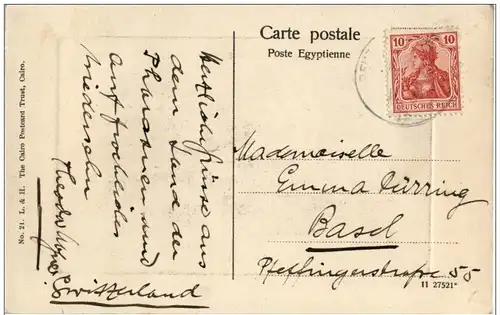 Carte postale
Poste Egyptienne
10 10
DEUTSCHES REICH
No. 21. L. & H. The Cairo Postcard Trust, Cairo.
Herzliche Grüsse aus
dem Land der
Pharaonen und
auf frohliches
Wiedersehn
Theodor
Mademoiselle
Emma Dürring
Basel
Pfeffingerstrasse 55
Switzerland
11 27521*